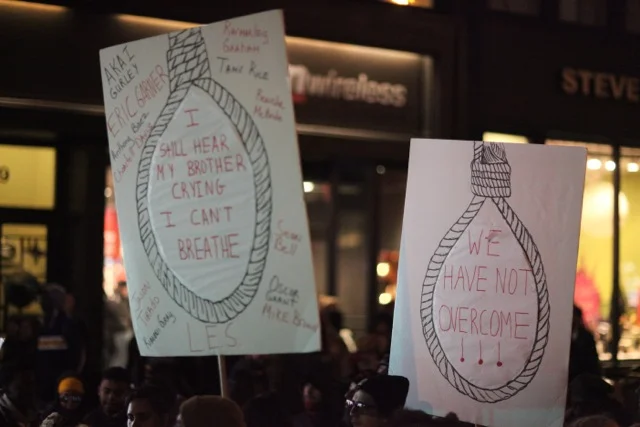 AKAI
GURLEY
ERIC GARNER
Kimberley
Graham
Tamir Rice
I
STILL HEAR
MY BROTHER
CRYING
I CAN'T
BREATHE
Sean
Bell
Oscar
Grant
MIKE Brown
LES
wireless
STEVE
WE
HAVE NOT
OVERCOME
!!!
9